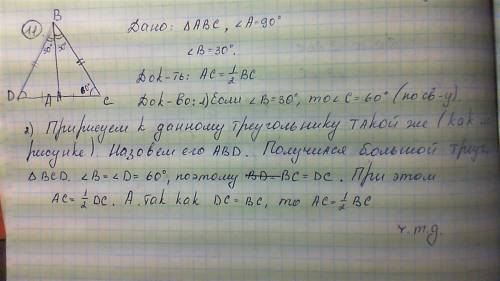 11
B
30°
30°
60°
D
A
C
Дано: △ABC, ∠A=90°
∠B=30°.
Док-ть: AC=½BC
Док-во: 1) Если ∠B=30°, то ∠C=60° (по св-у).
2) Пририсуем к данному треугольнику такой же (как
рисунке). Назовём его ABD. Получился большой
△BCD. ∠B=∠D=60°, поэтому BC=DC. При этом
AC=½DC. А так как DC=BC, то AC=½BC
ч.т.д.